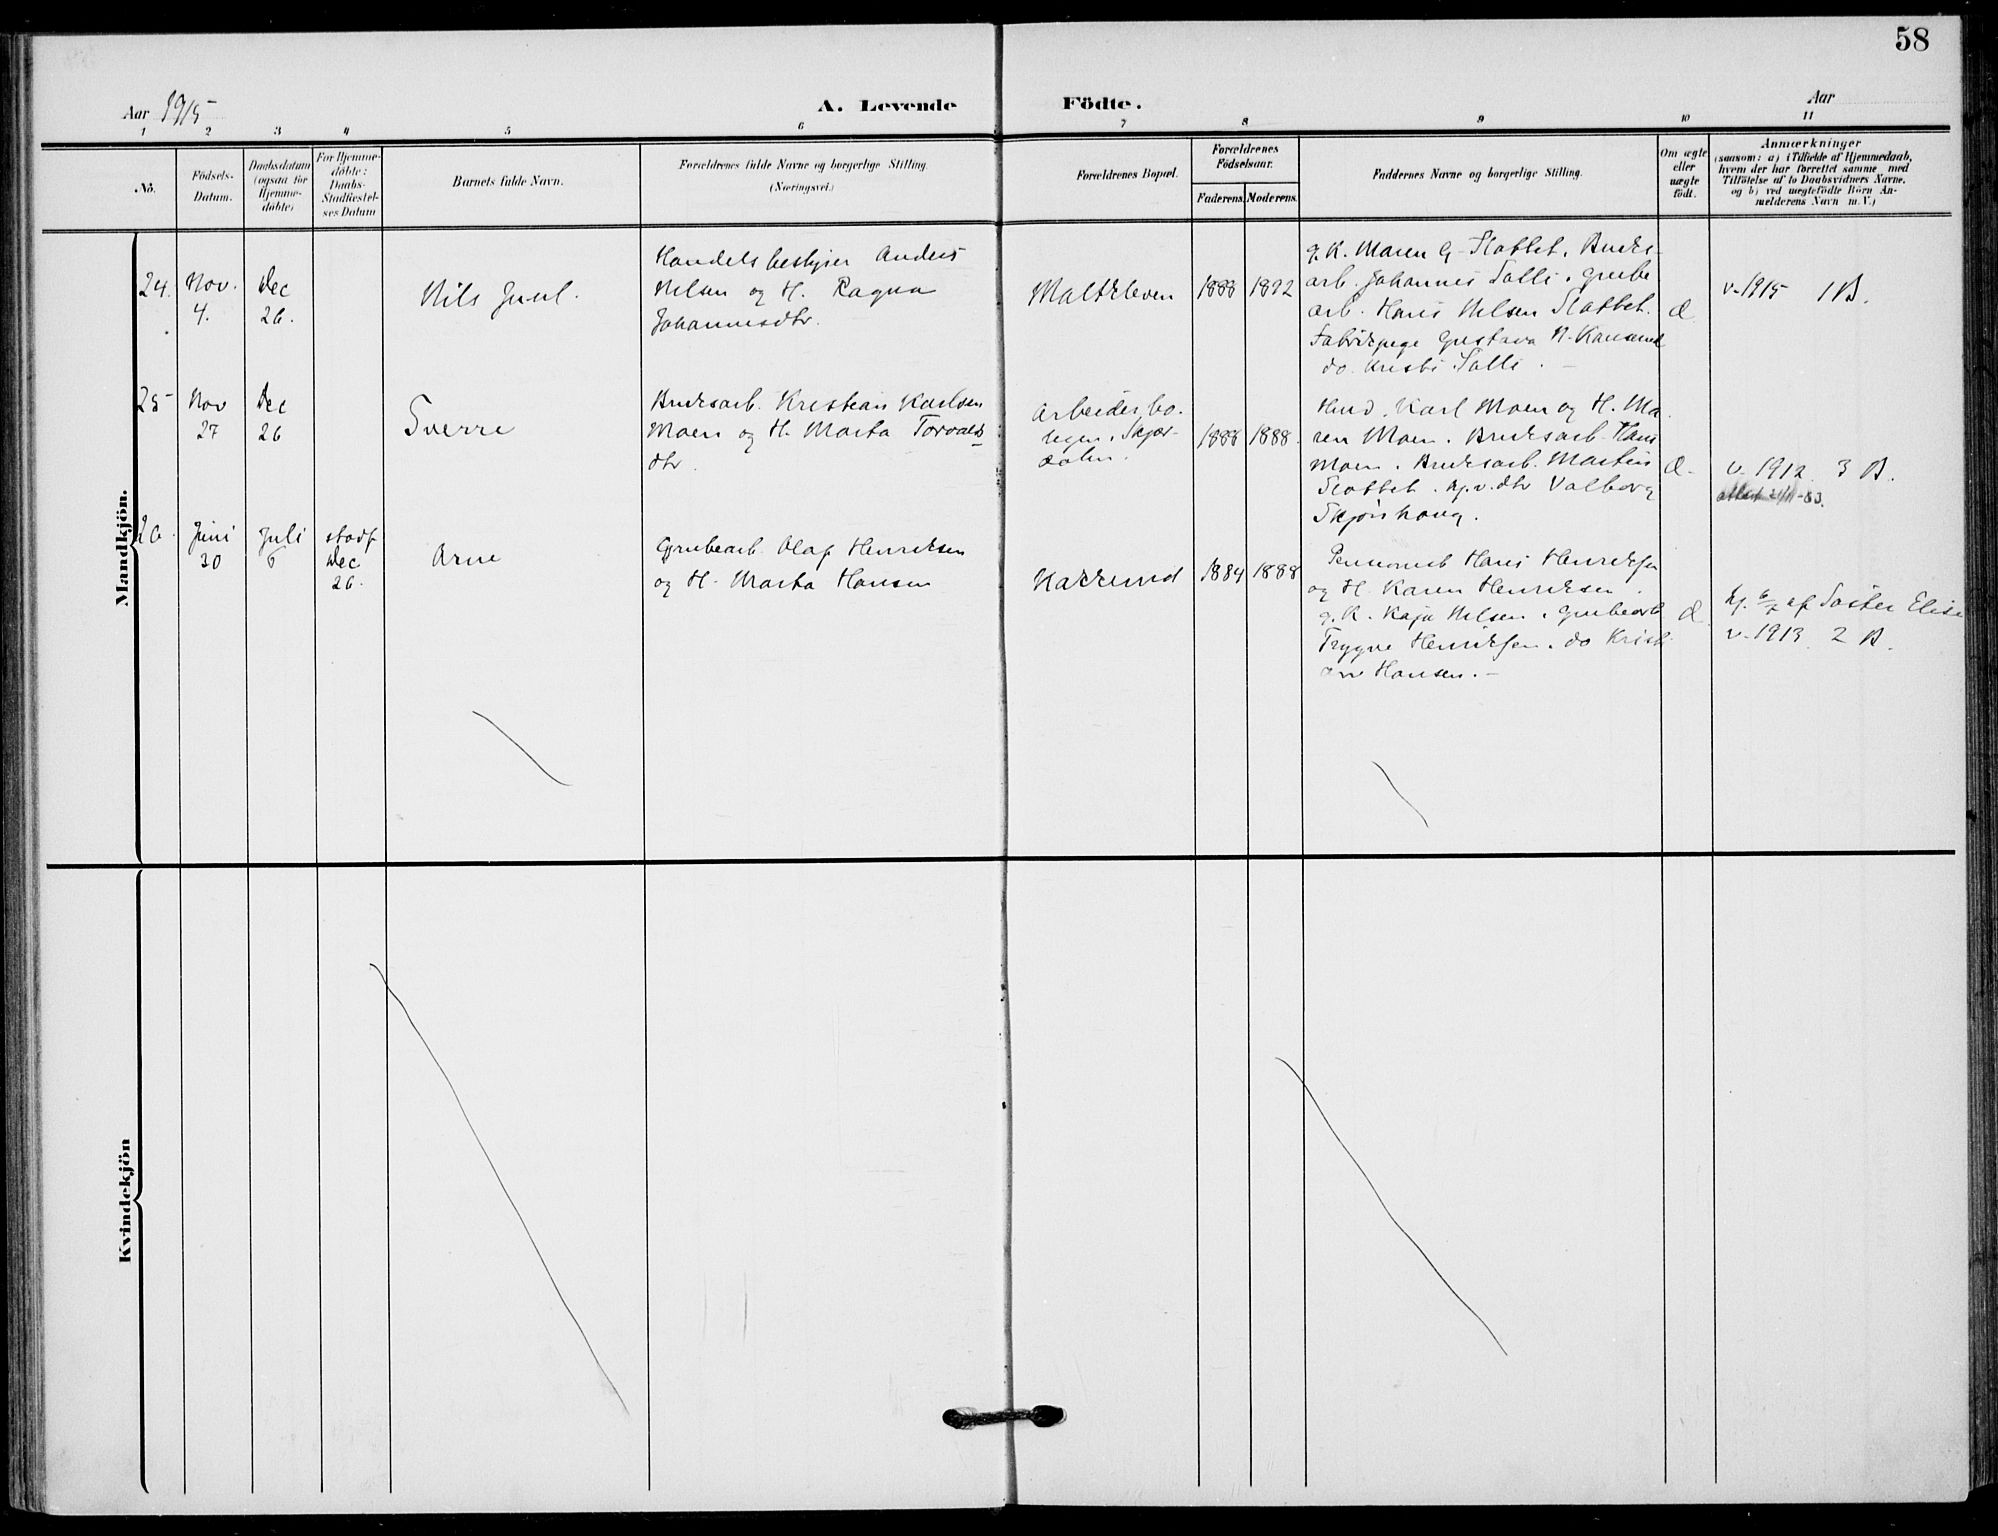 58
Aar 1915
A. Levende Födte.
Aar
1 2 3 4 5 6 7 8 9 10 11
No.
Födsels-
Datum.
Daabsdatum
(ogsaa for
Hjemme-
døbte)
For Hjemme-
døbte:
Daabs-
Stadfæstel-
ses Datum
Barnets fulde Navn.
Forældrenes fulde Navne og borgerlige Stilling.
(Næringsvei.)
Forældrenes Bopæl.
Forældrenes
Födselsaar.
Faderens. Moderens.
Faddernes Navne og borgerlige Stilling.
Om ægte
eller
uægte
födt.
Anmærkninger
(saasom: a) i Tilfælde af Hjemmedaab,
hvem der har forrettet samme med
Tilføielse af to Daabsvidners Navne.
og b) ved uægtefödte Börn An-
melderens Navn m.V.)
Mandkjön.
24.
Nov.
4.
Dec
26.
Nils Juul.
Handelsbestyrer Anders
Nilsen og H. Ragna
Johannesdtr.
Maltkleven
1888 1892
g. K. Maren G. Slottet. Bruks-
arb. Johannes Solli. Grube
arb. Hans Nilsen Slottet.
Fabrikpige Gustava N.
do. Kristi Solli. —
Æ
v. 1915 1 B.
25
Nov
27
Dec
26
Sverre
Bruksarb. Kristian Karlsen
Moen og H. Marta Torvalds
dtr.
Arbeiderbo-
ligen. Skjær-
dalen.
1888 1888.
Husd. Karl Moen og H. Ma-
ren Moen. Bruksarb. Hans
Moen. Bruksarb. Martin
Slottet. Gj. v. dtr Valborg
Æ.
v. 1912 3 B.
26.
Juni
30
Juli
6
stadf
Dec
26.
Arne
Grubearb. Olaf Henriksen
og H. Marta Hansen
Kakkerud
1884 1888
Pensionist Hans Henriksen
og H. Karen Henriksen.
g. K. Kaja Nilsen. Grubearb
Trygve Henriksen. do Kristi
an Hansen. —
Æ.
hj. 6/7 af Søster Elise
v. 1913 2 B.
Kvindekjön